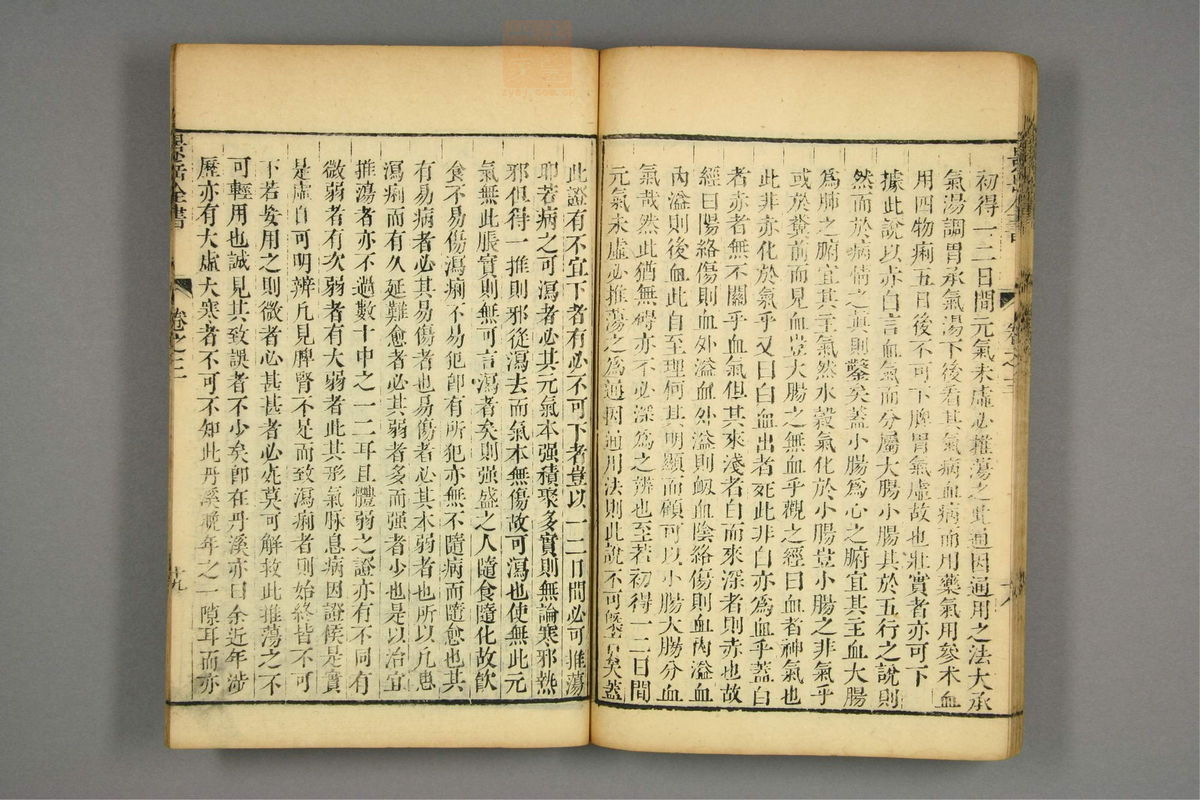 初得一二日間元氣未虛必推蕩之此通因通用之法大承
氣湯調胃承氣湯下後看其氣病血病而用藥氣用參术血
用四物痢五日後不可下脾胃氣虛故也壯實者亦可下
據此說以赤白言血氣而分屬大腸小腸其於五行之說則
然而於病情之真則鑿矣蓋小腸為心之腑宜其主血大腸
為肺之腑宜其主氣然水穀氣化於小腸豈小腸之非氣乎
或於糞前而見血豈大腸之無血乎觀之經曰血者神氣也
此非赤化於氣乎又曰白血出者死此非白亦為血乎蓋白
者赤者無不關乎血氣但其來淺者白而來深者則赤也故
經曰陽絡傷則血外溢血外溢則衂血陰絡傷則血內溢血
內溢則後血此自至理何其明顯而顧可以小腸大腸分血
氣哉然此猶無碍亦不必深為之辨也至若初得一二日間
元氣未虛必推蕩之為通因通用法則此說不可矣蓋
此證有不宜下者有必不可下者豈以一二日間必可推蕩
耶若病之可瀉者必其元氣本强積聚多實則無論寒邪熱
邪但得一推則邪從瀉去而氣本無傷故可瀉也使無此元
氣無此脹實則無可言瀉者矣則强盛之人隨食隨化故飲
食不易傷瀉痢不易犯卽有所犯亦無不隨病而隨愈也其
有易病者必其易傷者也易傷者必其本弱者也所以凡患
瀉痢而有久延難愈者必其弱者多而强者少也是以治宜
推蕩者亦不過數十中之一二耳且體弱之證亦有不同有
微弱者有次弱者有大弱者此其形氣脉息病因證候是實
是虛自可明辨凡見脾腎不足而致瀉痢者則始終皆不可
下若妄用之則微者必甚甚者必死莫可解救此推蕩之不
可輕用也誠見其致誤者不少矣卽在丹溪亦曰余近年涉
歷亦有大虛大寒者不可不知此丹溪晚年之一隙耳而亦
景岳全書
卷之
十九